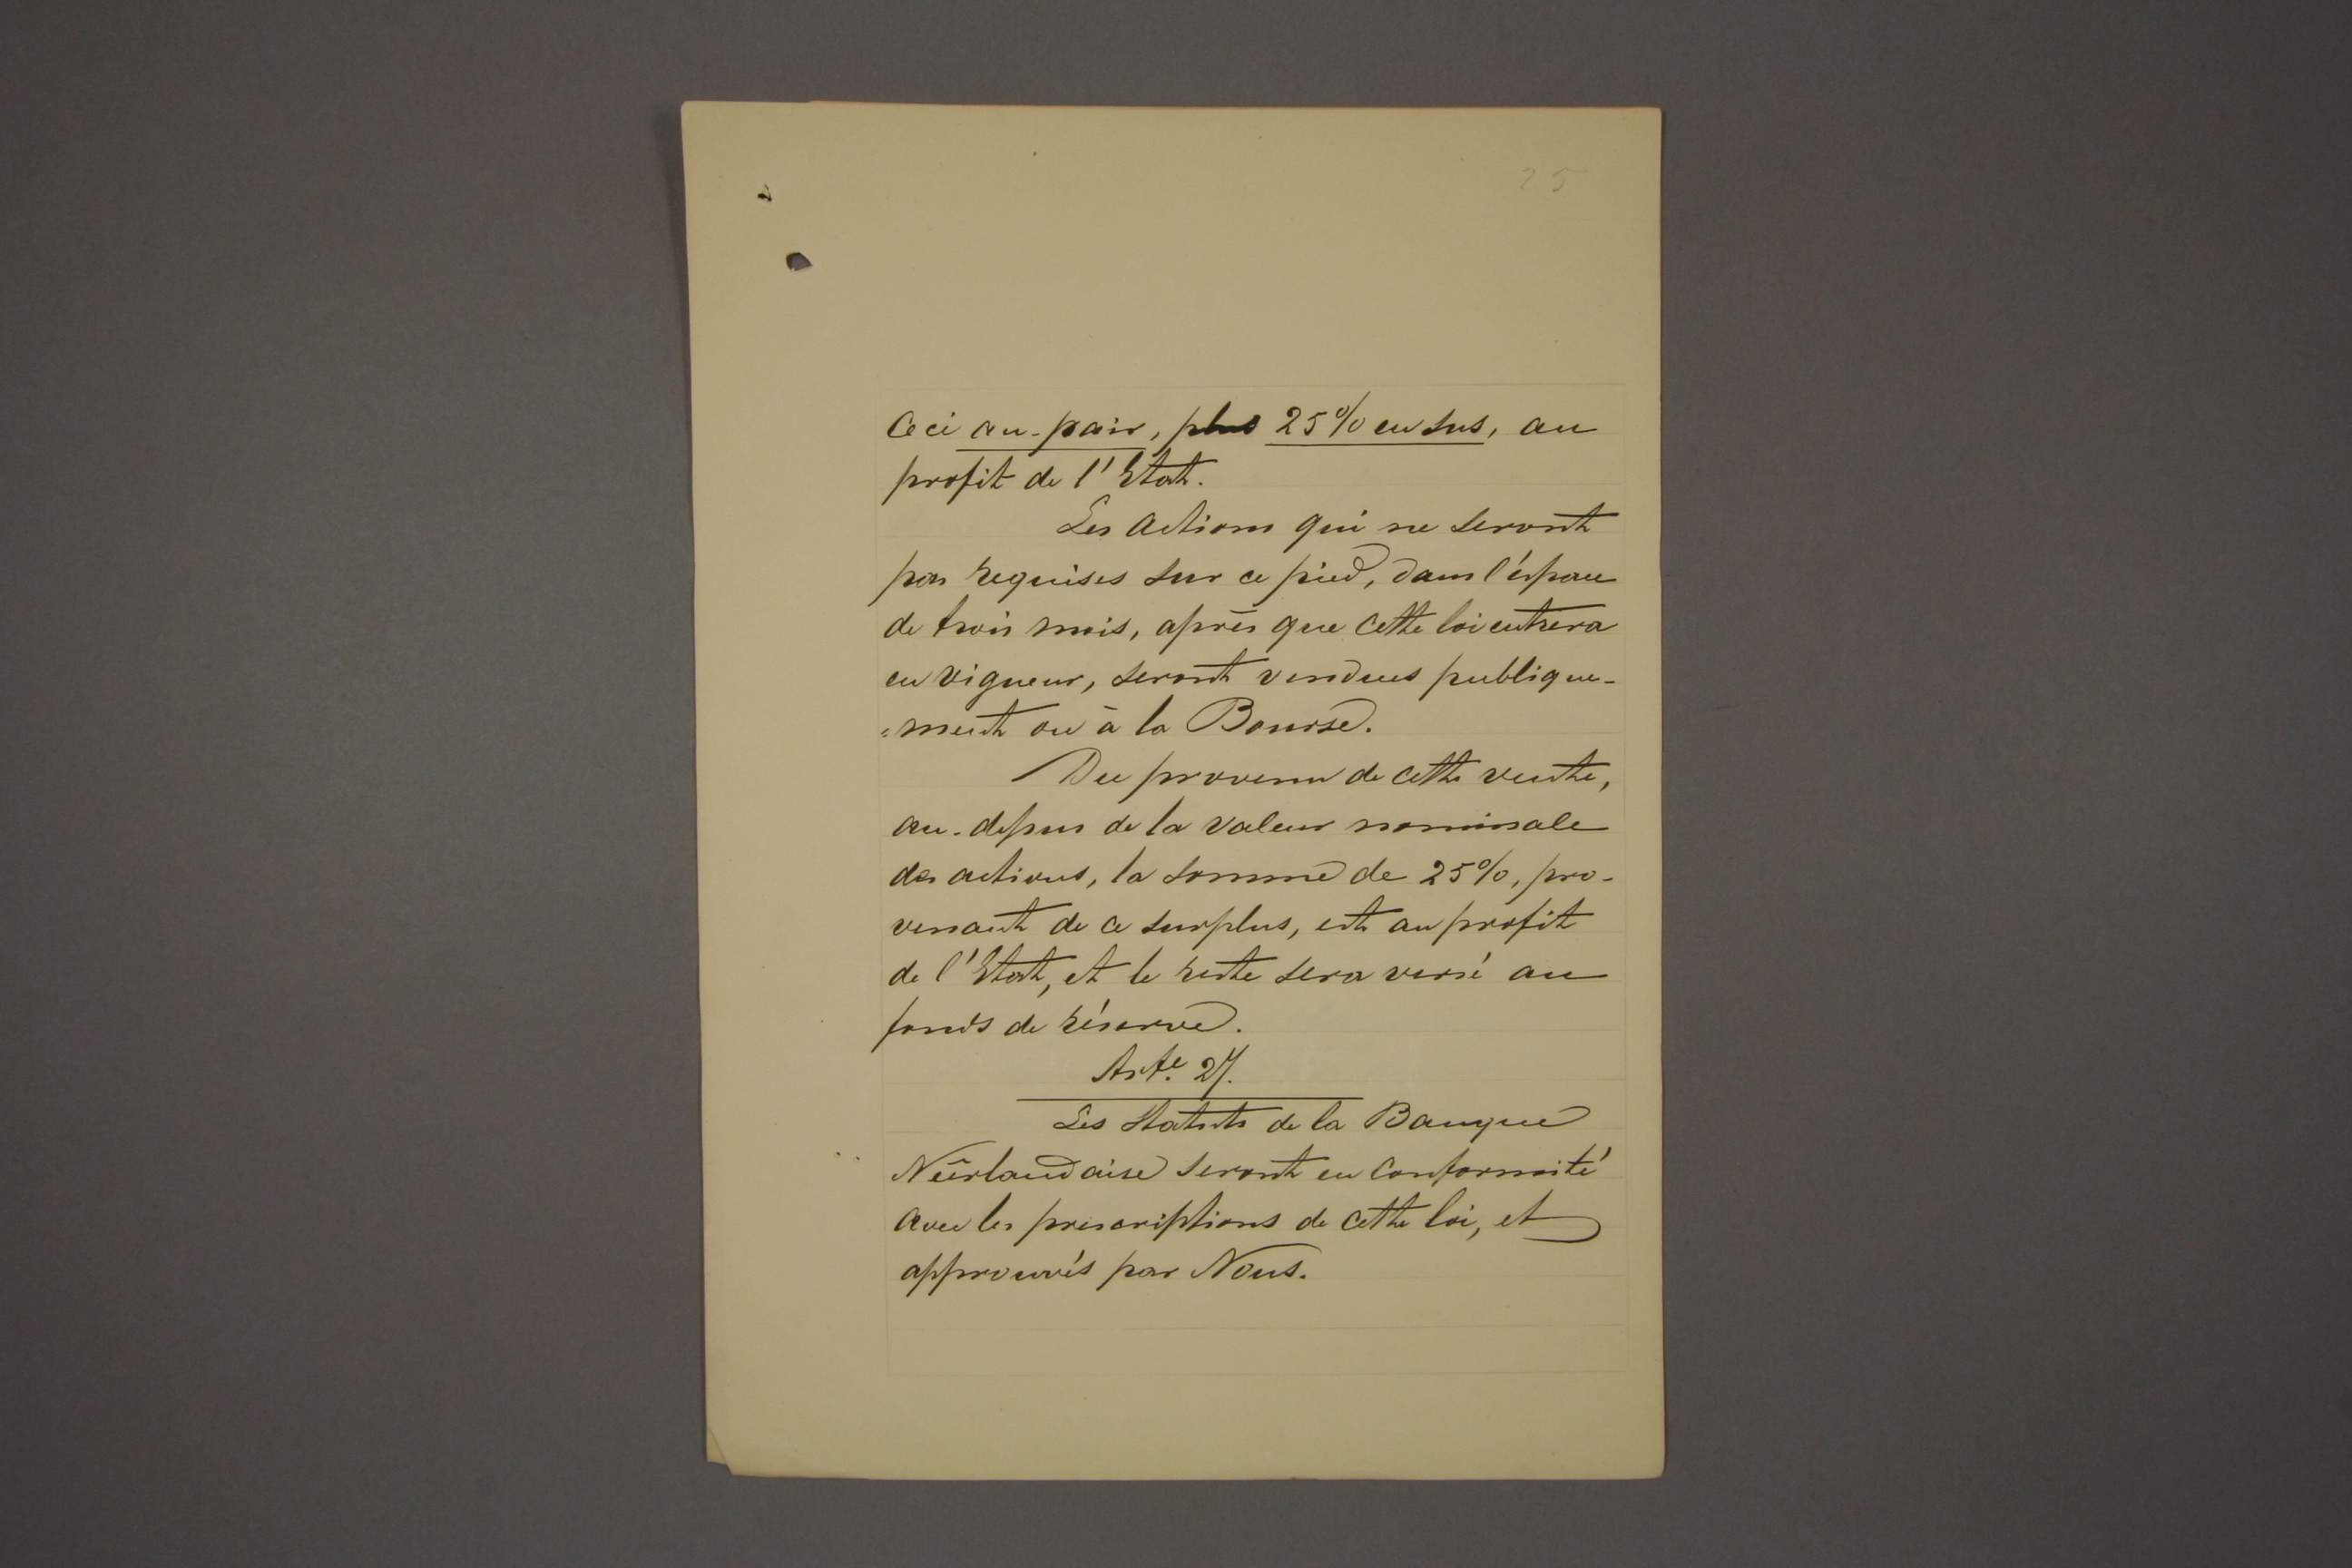 25
Ceci au-pair, plus 25% en sus, au
profit de l'Etat.
Les actions qui ne seront
pas requises sur ce pied, dans l'éspace
de trois mois, après que cette loi entrera
en vigueur, seront vendues publique-
=ment ou à la Bourse.
Du provenu de cette vente,
au-dessus de la valeur nominale
des actions, la somme de 25%, pro-
venant de ce surplus, est au profit
de l'Etat, et le reste sera versé au
fonds de réserve.
Arte. 27.
Les Statuts de la Banque
Néêrlandaise seront en conformité
avec les prescriptions de cette loi, et
approuvés par Nous.